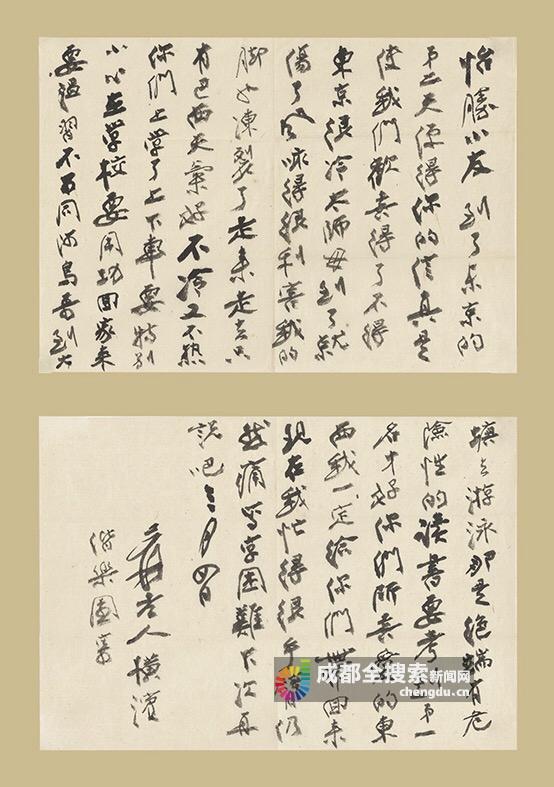 怡勝小友到了东京的
第二天便得你的信真是
使我們歡喜得了不得
東京很冷大師母到了就
傷了风咳得很利害我的
脚也凍裂了走来走去只
有巴西天氣好不冷又不熱
你們上學了上下車要特别
小心在學校要用功回家来
要温習不可同沛烏哥到大
鎮去游泳那是绝端有危
險性的讀書要考到第一
名才好你們所喜愛的東
西我一定给你們带回来
現在我忙得很手臂仍
然痛寫字困難下次再
說吧三月四日
爰老人橫濱
偕樂園寄
成都全搜索新闻网
chengdu.cn